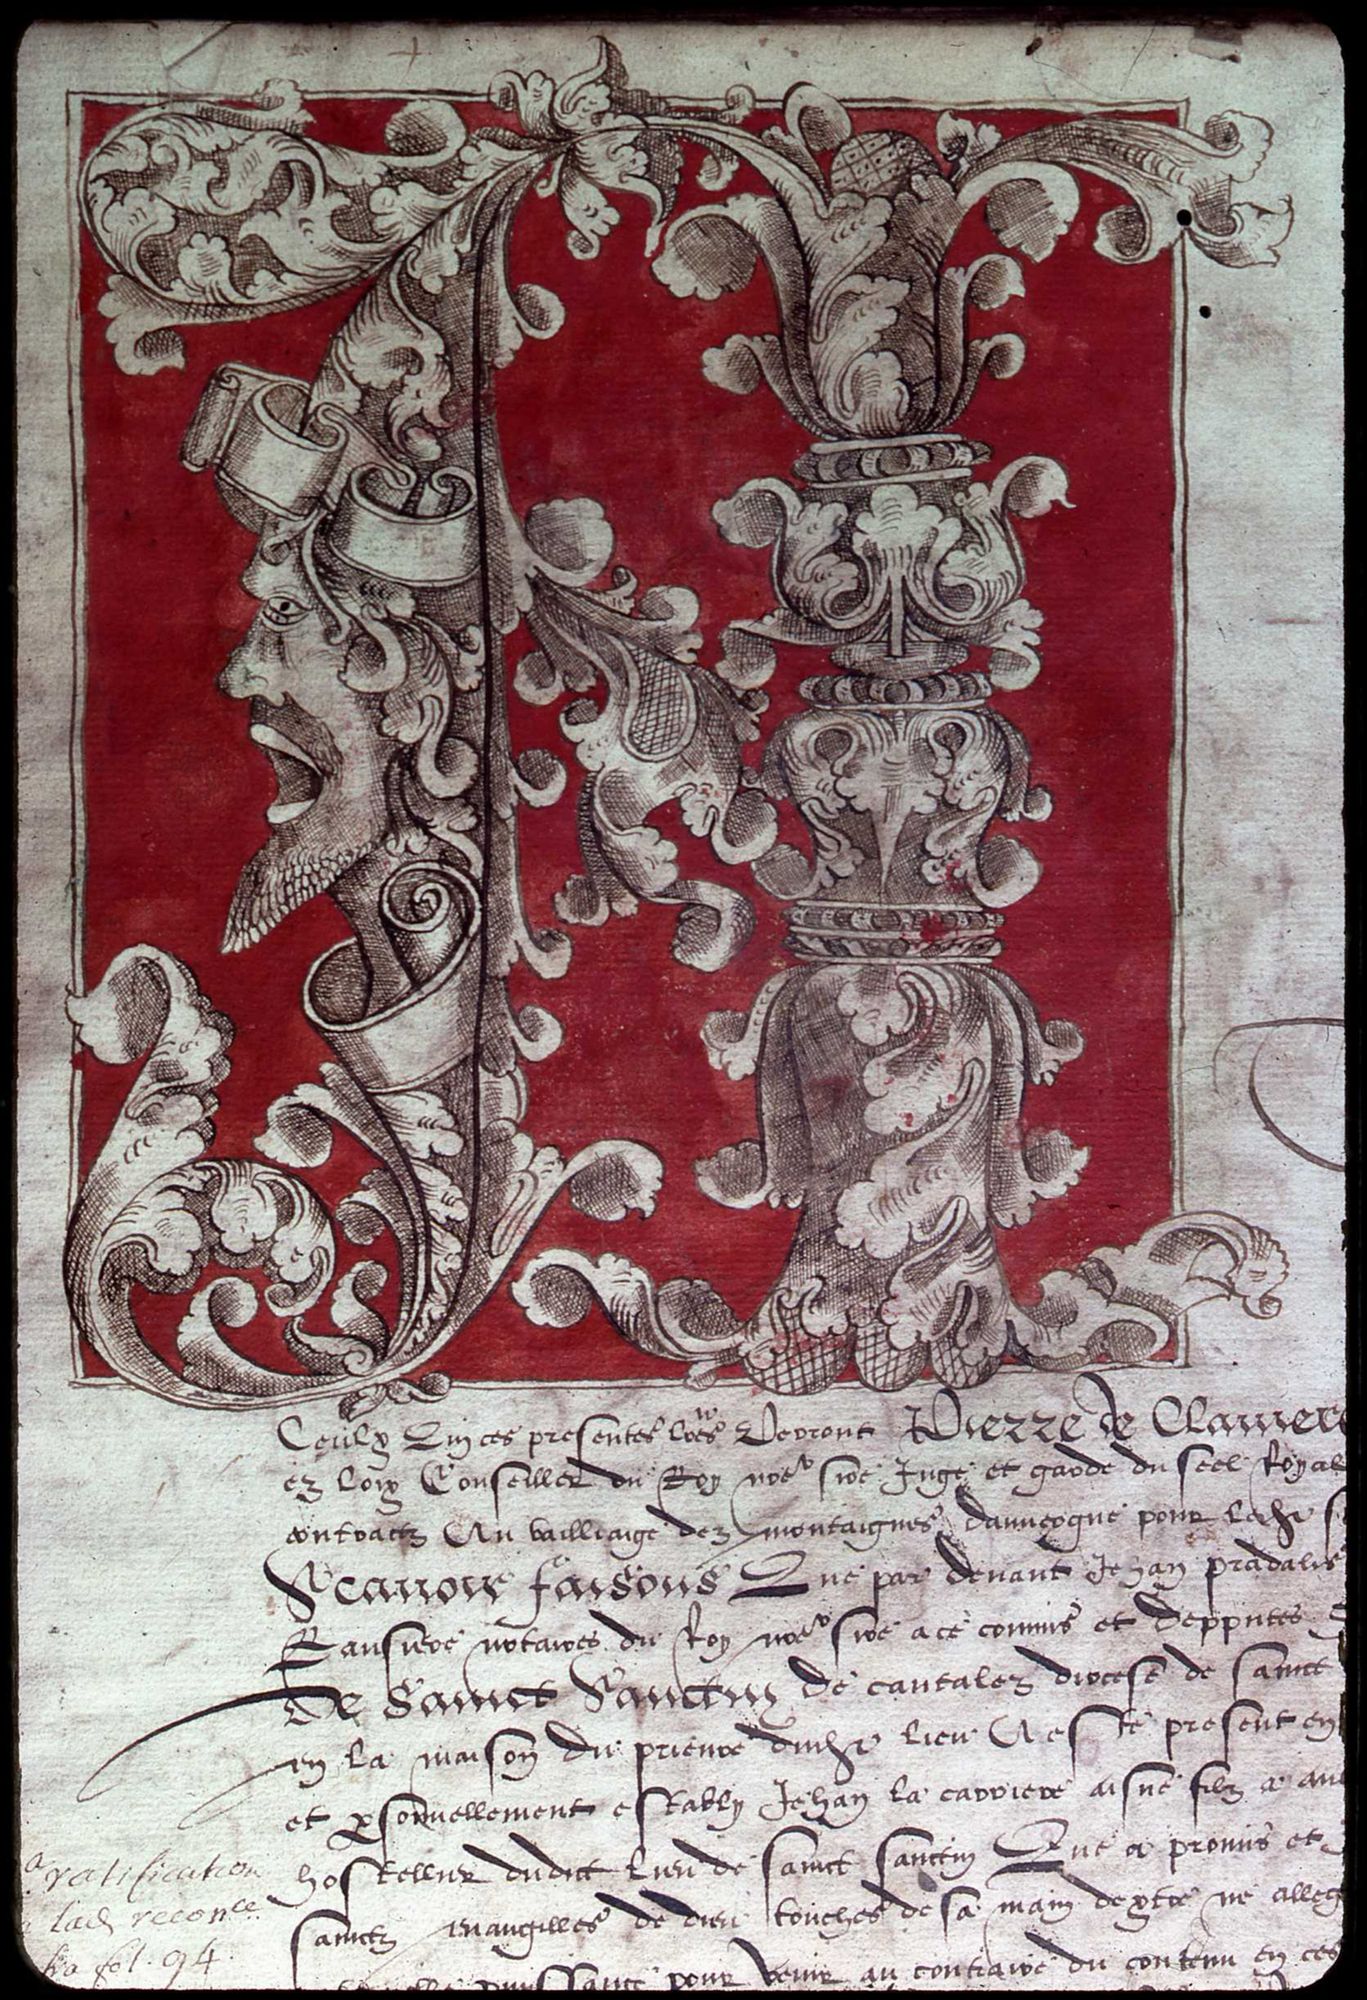 A
Ceulx Qui ces presentes lres Verront Pierre de Claviere
ez loix Conseiller du Roy nre sire Juge et garde du seel Royal
contractz Au bailliaige dez montaignes dauvergne pour ledit
Scavoir faisons Que par devant Jehan pradalis
notaires du Roy nre sire a ce commis et depputes
de Sainct Santin de cantalez diocese de sainct
en la maison du prieure dudit lieu A este present en
et personnellement estably Jehan la carriere aisne filz a
hostellier dudict lieu de sainct santin Que a promis et
sainctz evangilles de dieu touches de sa main dextre ne
puissance pour venir au contraire du contenu en ces
ratification
lad reconce
fol. 94